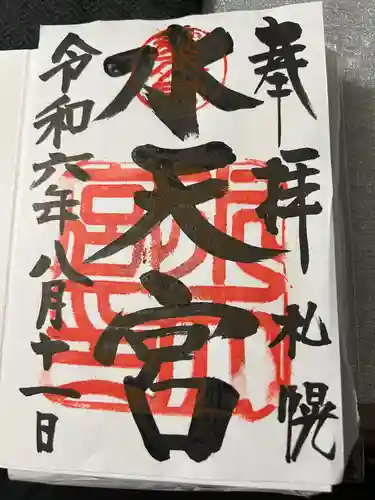 奉拝 札幌
水天宮
令和六年八月十一日